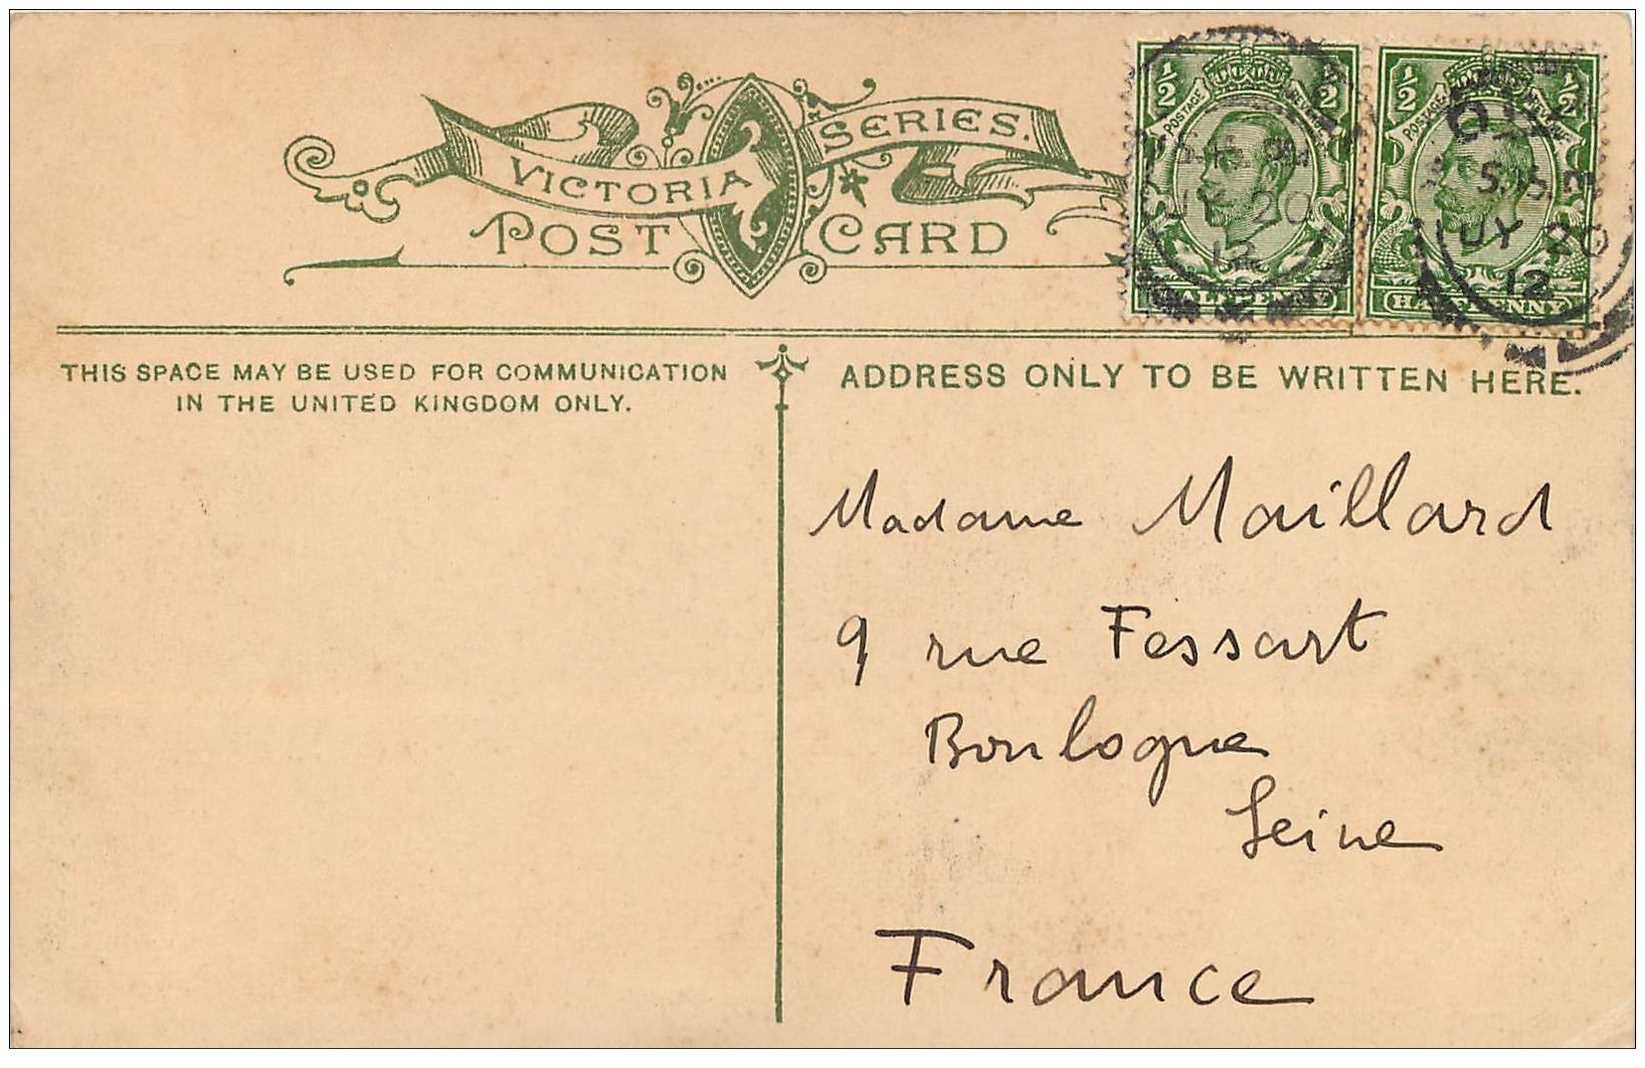 VICTORIA SERIES.
POST CARD
1/2 1/2
POSTAGE REVENUE
HALFPENNY
JY 20
12
1/2 1/2
POSTAGE REVENUE
HALFPENNY
JY 20
12
THIS SPACE MAY BE USED FOR COMMUNICATION
IN THE UNITED KINGDOM ONLY.
ADDRESS ONLY TO BE WRITTEN HERE.
Madame Maillard
9 rue Fessart
Boulogne
Seine
France